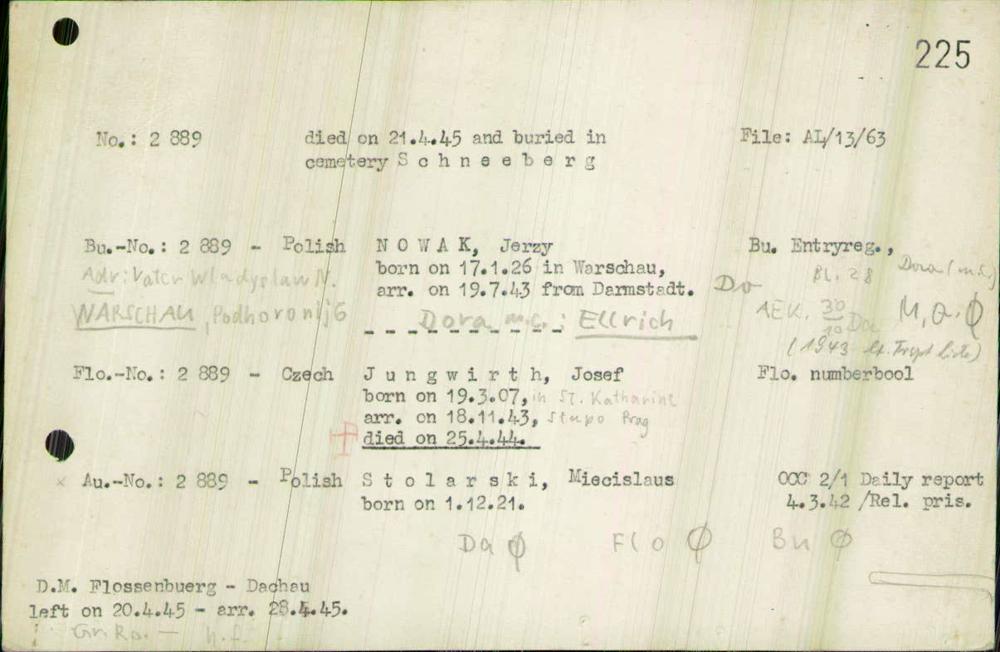 225
No.: 2 889 died on 21.4.45 and buried in File: AL/13/63
cemetery S c h n e e b e r g
Bu.-No.: 2 889 - Polish N O W A K, Jerzy Bu. Entryreg.,
Adr: Vater Wladyslaw N. born on 17.1.26 in Warschau, Bl. 28 Dora (m.c.)
arr. on 19.7.43 from Darmstadt. Do
WARSCHAU, AEK. 30/10 Da M, a. ϕ
Dora m.c.: Ellrich
(1943 Liste)
Flo.-No.: 2 889 - Czech J u n g w i r t h, Josef Flo. numberbool
born on 19.3.07, in St. Katharine
arr. on 18.11.43, Stapo Prag
died on 25.4.44.
x Au.-No.: 2 889 - Polish S t o l a r s k i, Miecislaus OCC 2/1 Daily report
born on 1.12.21. 4.3.42 /Rel. pris.
Da ϕ Flo ϕ Bu ϕ
D.M. Flossenbuerg - Dachau
left on 20.4.45 - arr. 28.4.45.
Gr. Ro. -